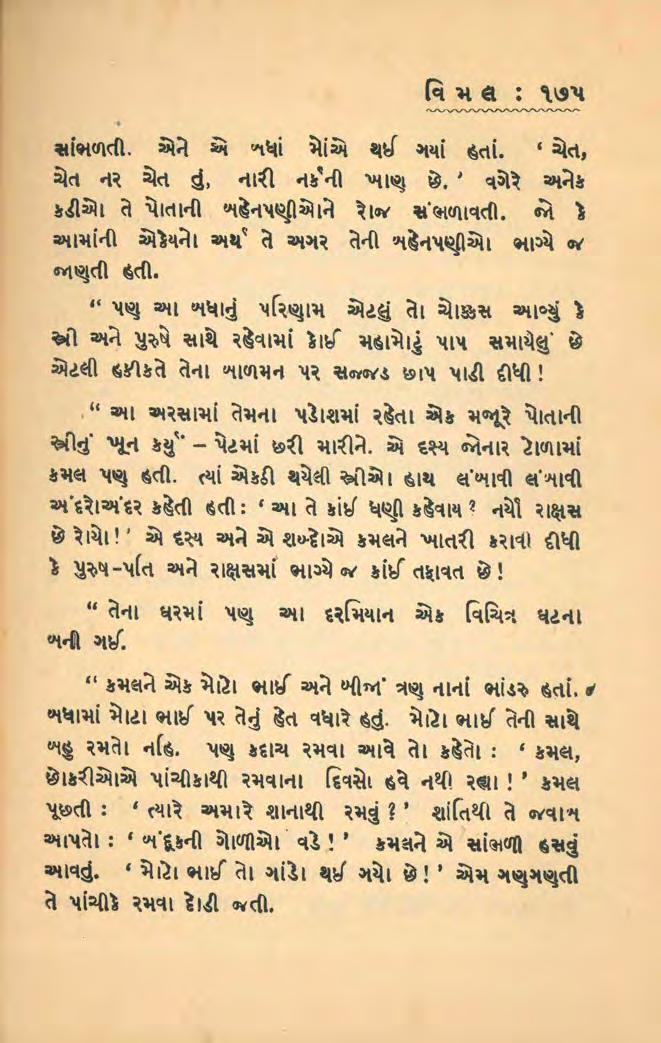 વિમલ : ૧૭૫
સાંભળતી. એને એ બધાં મોંએ થઈ ગયાં હતાં. ‘ ચેત,
ચેત નર ચેત તું, નારી નર્કની ખાણ છે. ’ વગેરે અનેક
કડીઓ તે પોતાની બહેનપણીઓને રોજ સંભળાવતી. જો કે
આમાંની એકેયનો અર્થ તે અગર તેની બહેનપણીઓ ભાગ્યે જ
જાણતી હતી.
“ પણ આ બધાનું પરિણામ એટલું તો ચોક્કસ આવ્યું કે
સ્ત્રી અને પુરુષે સાથે રહેવામાં કોઈ મહામોટું પાપ સમાયેલું છે
એટલી હકીકતે તેના બાળમન પર સજ્જડ છાપ પાડી દીધી !
“ આ અરસામાં તેમના પડોશમાં રહેતા એક મજૂરે પોતાની
સ્ત્રીનું ખૂન કર્યું – પેટમાં છરી મારીને. એ દૃસ્ય જોનાર ટોળામાં
કમલ પણ હતી. ત્યાં એકઠી થયેલી સ્ત્રીઓ હાથ લંબાવી લંબાવી
અંદરોઅંદર કહેતી હતી : ‘ આ તે કાંઈ ધણી કહેવાય ? નર્યો રાક્ષસ
છે રોયો ! ’ એ દૃસ્ય અને એ શબ્દોએ કમલને ખાતરી કરાવી દીધી
કે પુરુષ-પતિ અને રાક્ષસમાં ભાગ્યે જ કાંઈ તફાવત છે !
“ તેના ઘરમાં પણ આ દરમિયાન એક વિચિત્ર ઘટના
બની ગઈ.
“ કમલને એક મોટો ભાઈ અને બીજાં ત્રણ નાનાં ભાંડરુ હતાં.
બધામાં મોટા ભાઈ પર તેનું હેત વધારે હતું. મોટો ભાઈ તેની સાથે
બહુ રમતો નહિ. પણ કદાચ રમવા આવે તો કહેતો : ‘ કમલ,
છોકરીઓએ પાંચીકાથી રમવાના દિવસો હવે નથી રહ્યા ! ’ કમલ
પૂછતી : ‘ ત્યારે અમારે શાનાથી રમવું ? ’ શાંતિથી તે જવાબ
આપતો : ‘ બંદૂકની ગોળીઓ વડે ! ’ કમલને એ સાંભળી હસવું
આવતું. ‘ મોટો ભાઈ તો ગાંડો થઈ ગયો છે ! ’ એમ ગણગણતી
તે પાંચીકે રમવા દોડી જતી.